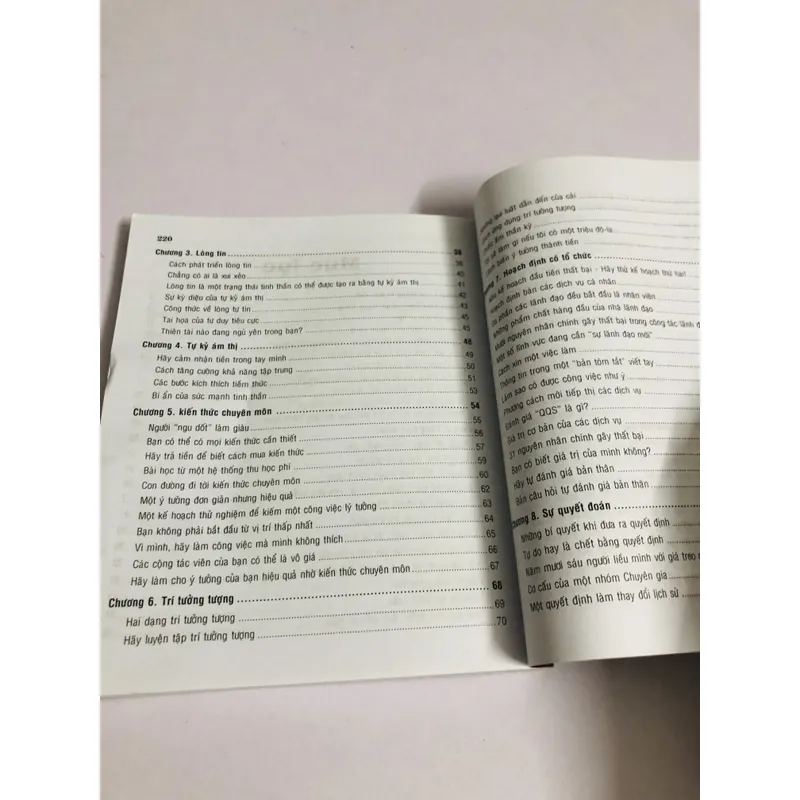 220
Chương 3. Lòng tin 38
Cách phát triển lòng tin 38
Chẳng có ai là xui xẻo 40
Lòng tin là một trạng thái tinh thần có thể được tạo ra bằng tự kỷ ám thị 41
Sự kỳ diệu của tự kỷ ám thị 42
Công thức về lòng tự tin 43
Tai họa của tư duy tiêu cực 45
Thiên tài nào đang ngủ yên trong bạn? 45
Chương 4. Tự kỷ ám thị 48
Hãy cảm nhận tiền trong tay mình 49
Cách tăng cường khả năng tập trung 50
Các bước kích thích tiềm thức 51
Bí ẩn của sức mạnh tinh thần 53
Chương 5. kiến thức chuyên môn 54
Người "ngu dốt" làm giàu 55
Bạn có thể có mọi kiến thức cần thiết 56
Hãy trả tiền để biết cách mua kiến thức 57
Bài học từ một hệ thống thu học phí 59
Con đường đi tới kiến thức chuyên môn 60
Một ý tưởng đơn giản nhưng hiệu quả 62
Một kế hoạch thử nghiệm để kiếm một công việc lý tưởng 63
Bạn không phải bắt đầu từ vị trí thấp nhất 64
Vì mình, hãy làm công việc mà mình không thích 65
Các cộng tác viên của bạn có thể là vô giá 66
Hãy làm cho ý tưởng của bạn hiệu quả nhờ kiến thức chuyên môn 67
Chương 6. Trí tưởng tượng 68
Hai dạng trí tưởng tượng 69
Hãy luyện tập trí tưởng tượng 70
quy luật dẫn đến của cải
ứng dụng trí tưởng tượng
ấm thần kỳ
làm gì nếu tôi có một triệu đô-la
biến ý tưởng thành tiền
7. Hoạch định có tổ chức
kế hoạch đầu tiên thất bại - Hãy thử kế hoạch thứ hai!
định bán các dịch vụ cá nhân
phần các lãnh đạo đều bắt đầu là nhân viên
Những phẩm chất hàng đầu của nhà lãnh đạo
Mười nguyên nhân chính gây thất bại trong công tác lãnh
Một số lĩnh vực đang cần "sự lãnh đạo mới"
Cách xin một việc làm
Thông tin trong một "bản tóm tắt" viết tay
Làm sao có được công việc như ý
Phương cách mới tiếp thị các dịch vụ
Đánh giá "QQS" là gì?
Giá trị cơ bản của các dịch vụ
31 nguyên nhân chính gây thất bại
Bạn có biết giá trị của mình không?
Hãy tự đánh giá bản thân
Bản câu hỏi tự đánh giá bản thân
Chương 8. Sự quyết đoán
Những bí quyết khi đưa ra quyết định
Tự do hay là chết bằng quyết định
Năm mươi sáu người liều mình với giá treo
Cơ cấu của một nhóm Chuyên gia
Một quyết định làm thay đổi lịch sử